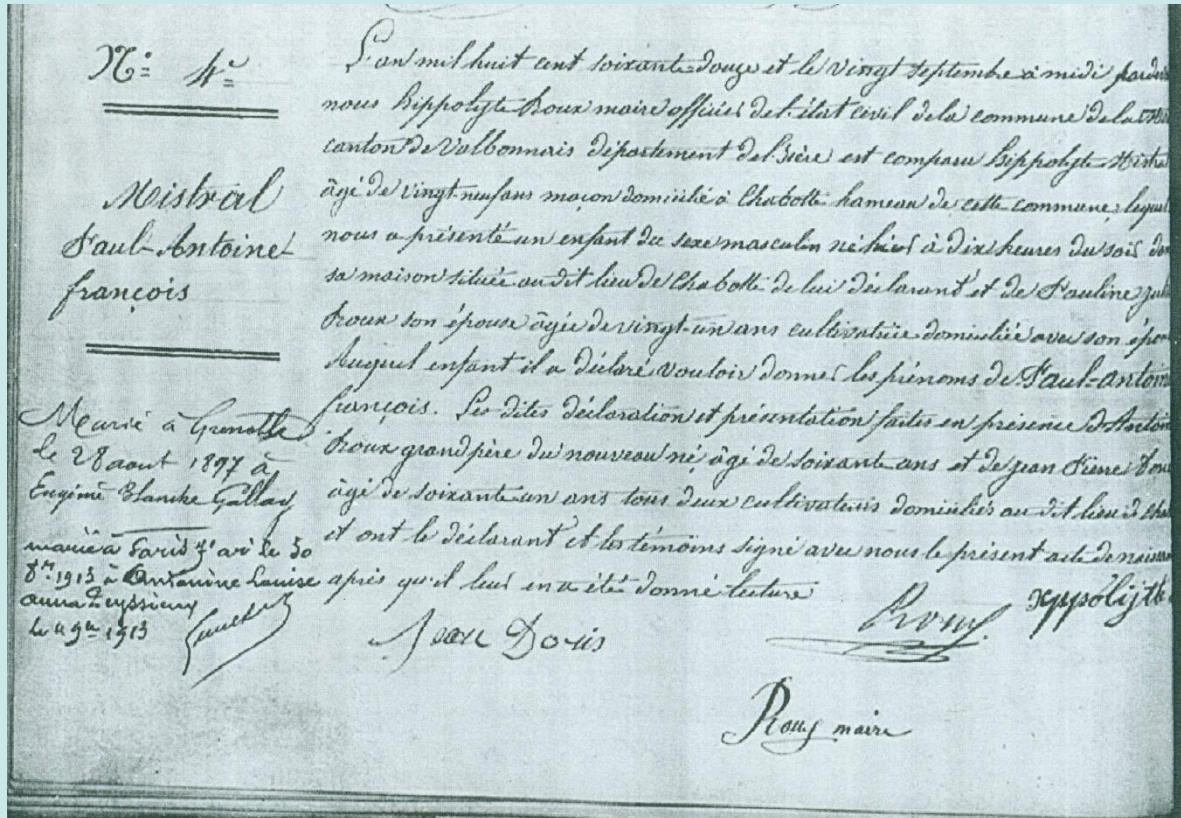 N° 4e
Mistral
Paul-Antoine
françois
Marié à Grenoble
le 28 aout 1897 à
Eugénie Blanche Gallay
marié à Paris 7e arr le 30
8bre 1913 à Antonine Louise
anna Teyssieux
le 4 9bre 1913
L'an mil huit cent soixante-douze et le vingt septembre à midi pardevant
nous hippolyte Roux maire officier de l'état civil de la commune de la
canton de Valbonnais département de l'isère est comparu hippolyte Mistral
âgé de vingt-neuf ans maçon domicilié à Chabotte hameau de cette commune, lequel
nous a présenté un enfant du sexe masculin né hier à dix heures du soir dans
sa maison située au dit lieu de Chabotte de lui déclarant et de Pauline Julie
Roux son épouse âgée de vingt-un ans cultivatrice domiciliée avec son époux
Auquel enfant il a déclaré vouloir donner les prénoms de Paul-Antoine
françois. Les dites déclaration et présentation faites en présence d'Antoine
Roux grand père du nouveau né âgé de soixante ans et de jean Pierre
âgé de soixante un ans tous deux cultivateurs domiciliés au dit lieu de
et ont le déclarant et les témoins signé avec nous le présent acte de naissance
après qu'il leur en a été donné lecture
Jean Doris Roux hyppolijte
Roux maire